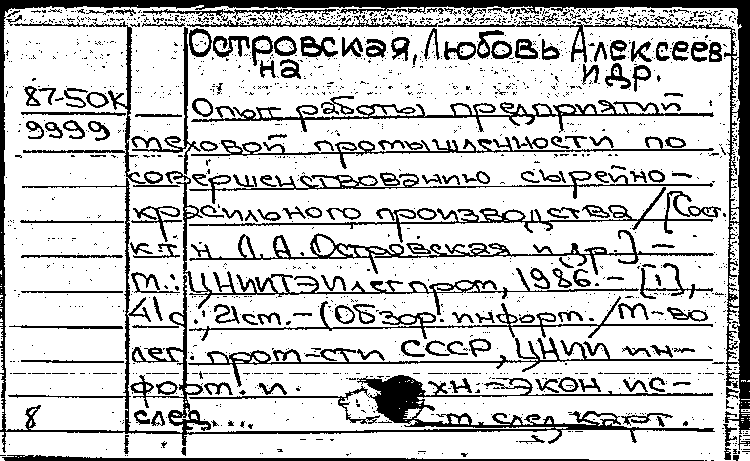 Островская, Любовь Алексеев-
на и др.
87-50К
9999
Опыт работы предприятий
меховой промышленности по
совершенствованию сырейно-
красильного производства / [Сост.
к.т.н. Л.А. Островская и др.] -
М.: ЦНИИТЭИлегпром, 1986. - [1],
41 с.; 21 см. - (Обзор. информ. / М-во
лег. пром-сти СССР, ЦНИИ ин-
форм. и хн.-экон. ис-
след....
См. след. карт.
8